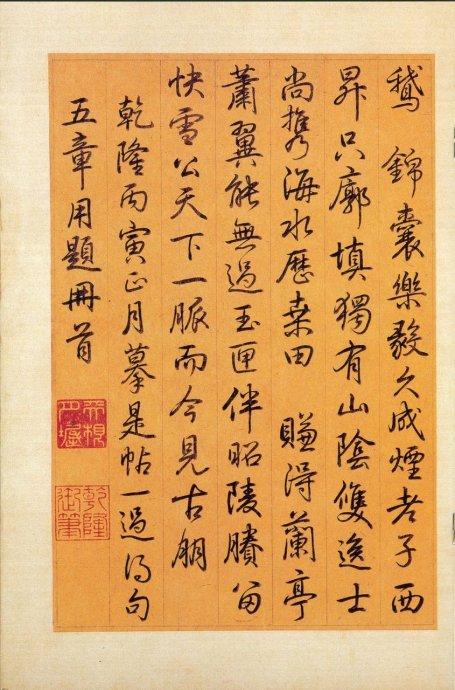 鵝 錦囊樂毅久成煙老子西
昇只廓填獨有山陰雙逸士
尚攜海水歷桑田 賺得蘭亭
蕭翼能無過玉匣伴昭陵賸留
快雪公天下一脈而今見古朋
乾隆丙寅正月摹是帖一過得句
五章用題冊首
乾隆御筆